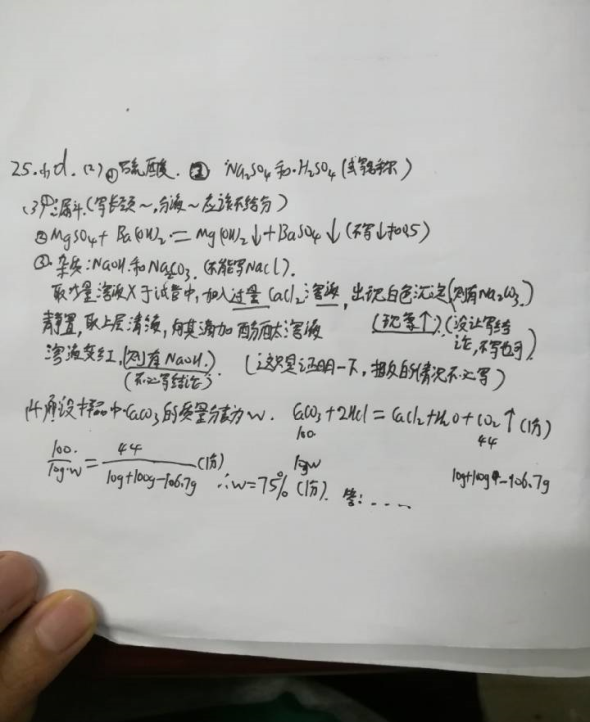 25.(1)d. (2)①硫酸. ② Na2SO4和H2SO4(或写名称)
(3)①漏斗.(写长颈~,分液~应该不给分)
②MgSO4+Ba(OH)2=Mg(OH)2↓+BaSO4↓(不写↓扣0.5)
③杂质:NaOH和Na2CO3.(不能写NaCl).
取少量溶液X于试管中,加入过量CaCl2溶液,出现白色沉淀(则有Na2CO3.)
静置,取上层清液,向其滴加酚酞溶液 (现象↑)(没让写结
溶液变红,(则有NaOH.) 论,不写也可)
(不必写结论) (这只是证明一下,相反的情况不必写)
(4)解设样品中CaCO3的质量分数为w. CaCO3+2HCl=CaCl2+H2O+CO2↑(1分)
100 44
100/10g·w=44/10g+100g-106.7g(1分) 10gw 10g+100g-106.7g
∴w=75%(1分). 答:....